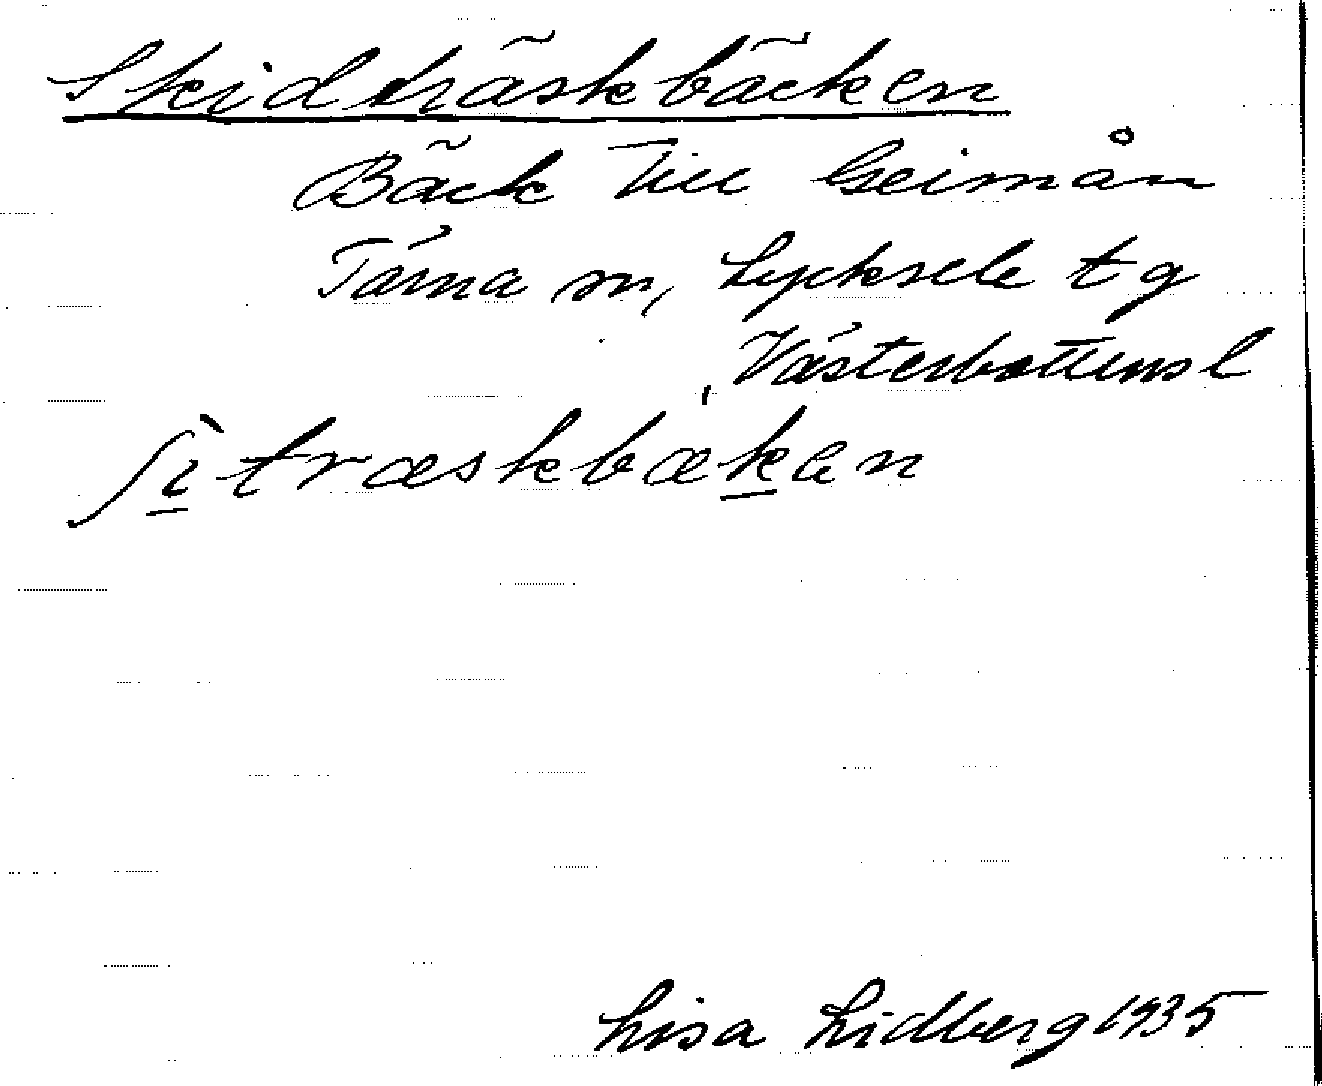 Skidträskbäcken
Bäck till Geimån
Tärna sn, Lycksele tg
Västerbottens l
ʃi̠ ̀træskbæk̠an
Lisa Lidberg 1935